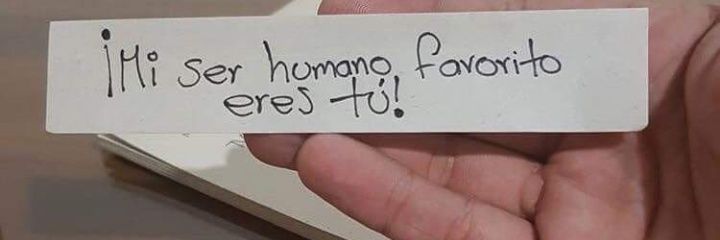 ¡Mi ser humano favorito
eres tú!